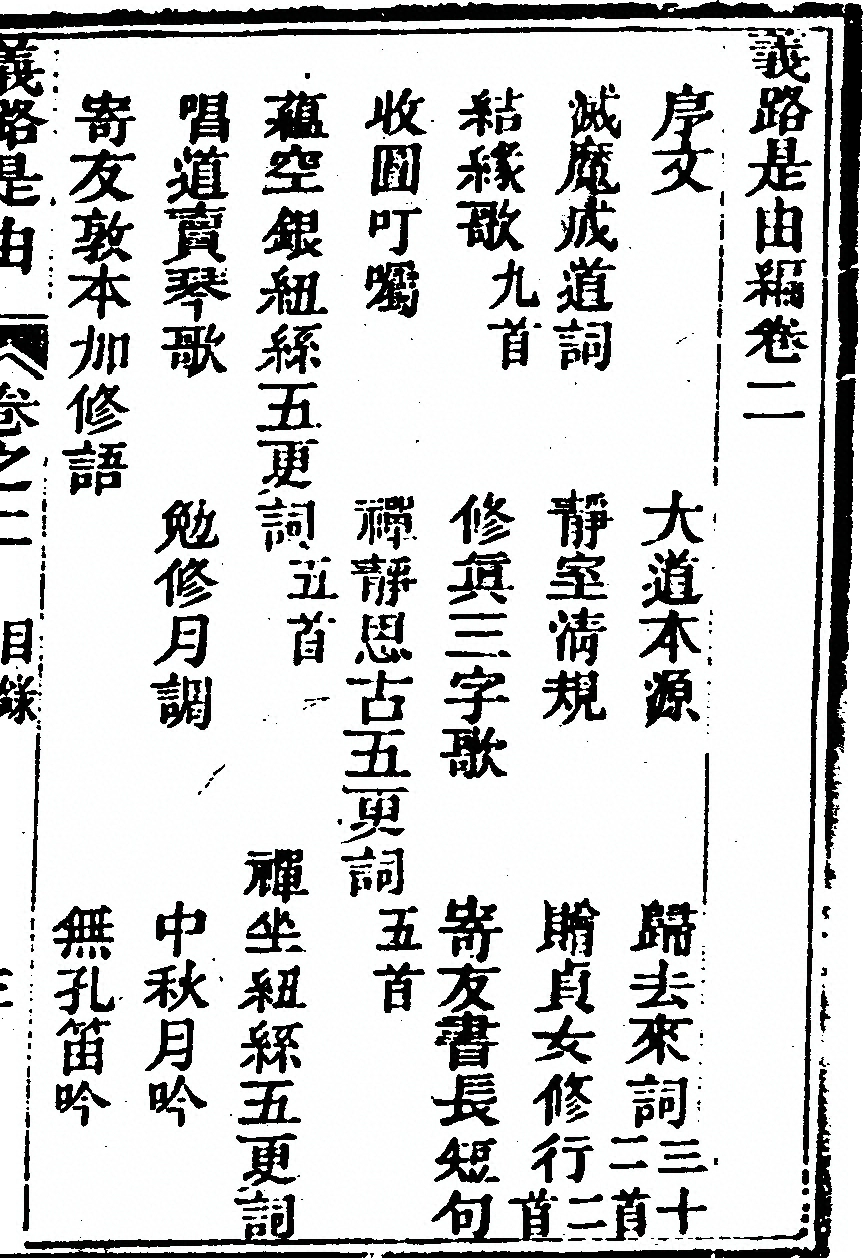 義路是由編卷二
序文 大道本源 歸去來詞三十二首
滅魔戒道詞 靜室清規 贈貞女修行二首
結緣歌九首 修眞三字歌 寄友書長短句
收圓叮囑 禪靜思古五更詞五首
蘊空銀紐絲五更詞五首 禪坐紐絲五更詞
唱道賣琴歌 勉修月調 中秋月吟
寄友敦本加修語 無孔笛吟
義路是由 卷之二 目錄 三